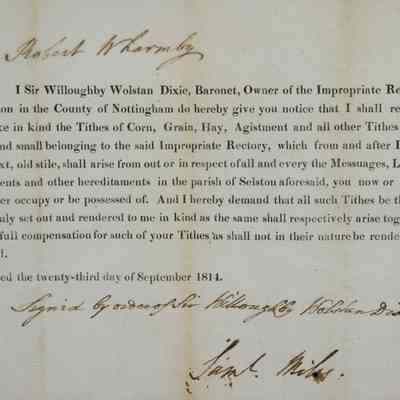 Robert Wharmby
I Sir Willoughby Wolstan Dixie, Baronet, Owner of the Impropriate Re
on in the County of Nottingham do hereby give you notice that I shall re
e in kind the Tithes of Corn, Grain, Hay, Agistment and all other Tithes
nd small belonging to the said Impropriate Rectory, which from and after
xt, old stile, shall arise from out or in respect of all and every the Messuages, L
ents and other hereditaments in the parish of Selston aforesaid, you now or
er occupy or be possessed of. And I hereby demand that all such Tithes be th
uly set out and rendered to me in kind as the same shall respectively arise tog
full compensation for such of your Tithes as shall not in their nature be rende
d.
ed the twenty-third day of September 1814.
Signed by order of Sir Willoughby Wolstan Dix
Saml. Miles.